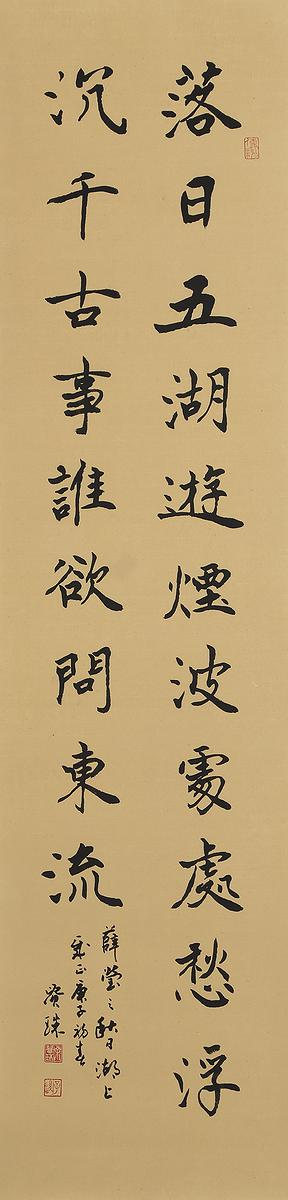 落日五湖遊煙波處處愁浮
沉千古事誰欲問東流
薛瑩之秋日湖上
歲正庚子初春